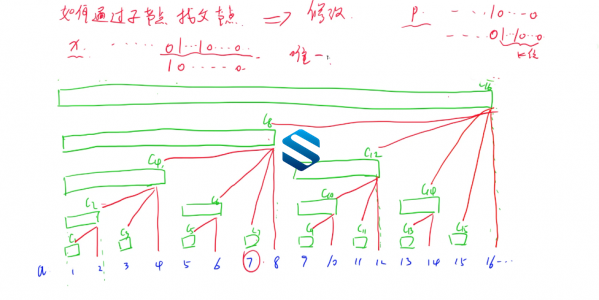 如何通过子节点找父节点 ⇒ 修改
P ·····10···0
x ······01··10···0 唯一
····01··10··0
10·····0 k位
C16
C8
C4 C12
C2 C6 C10 C14
C1 C3 C5 C7 C9 C11 C13 C15
a 1 2 3 4 5 6 7 8 9 10 11 12 13 14 15 16 ···